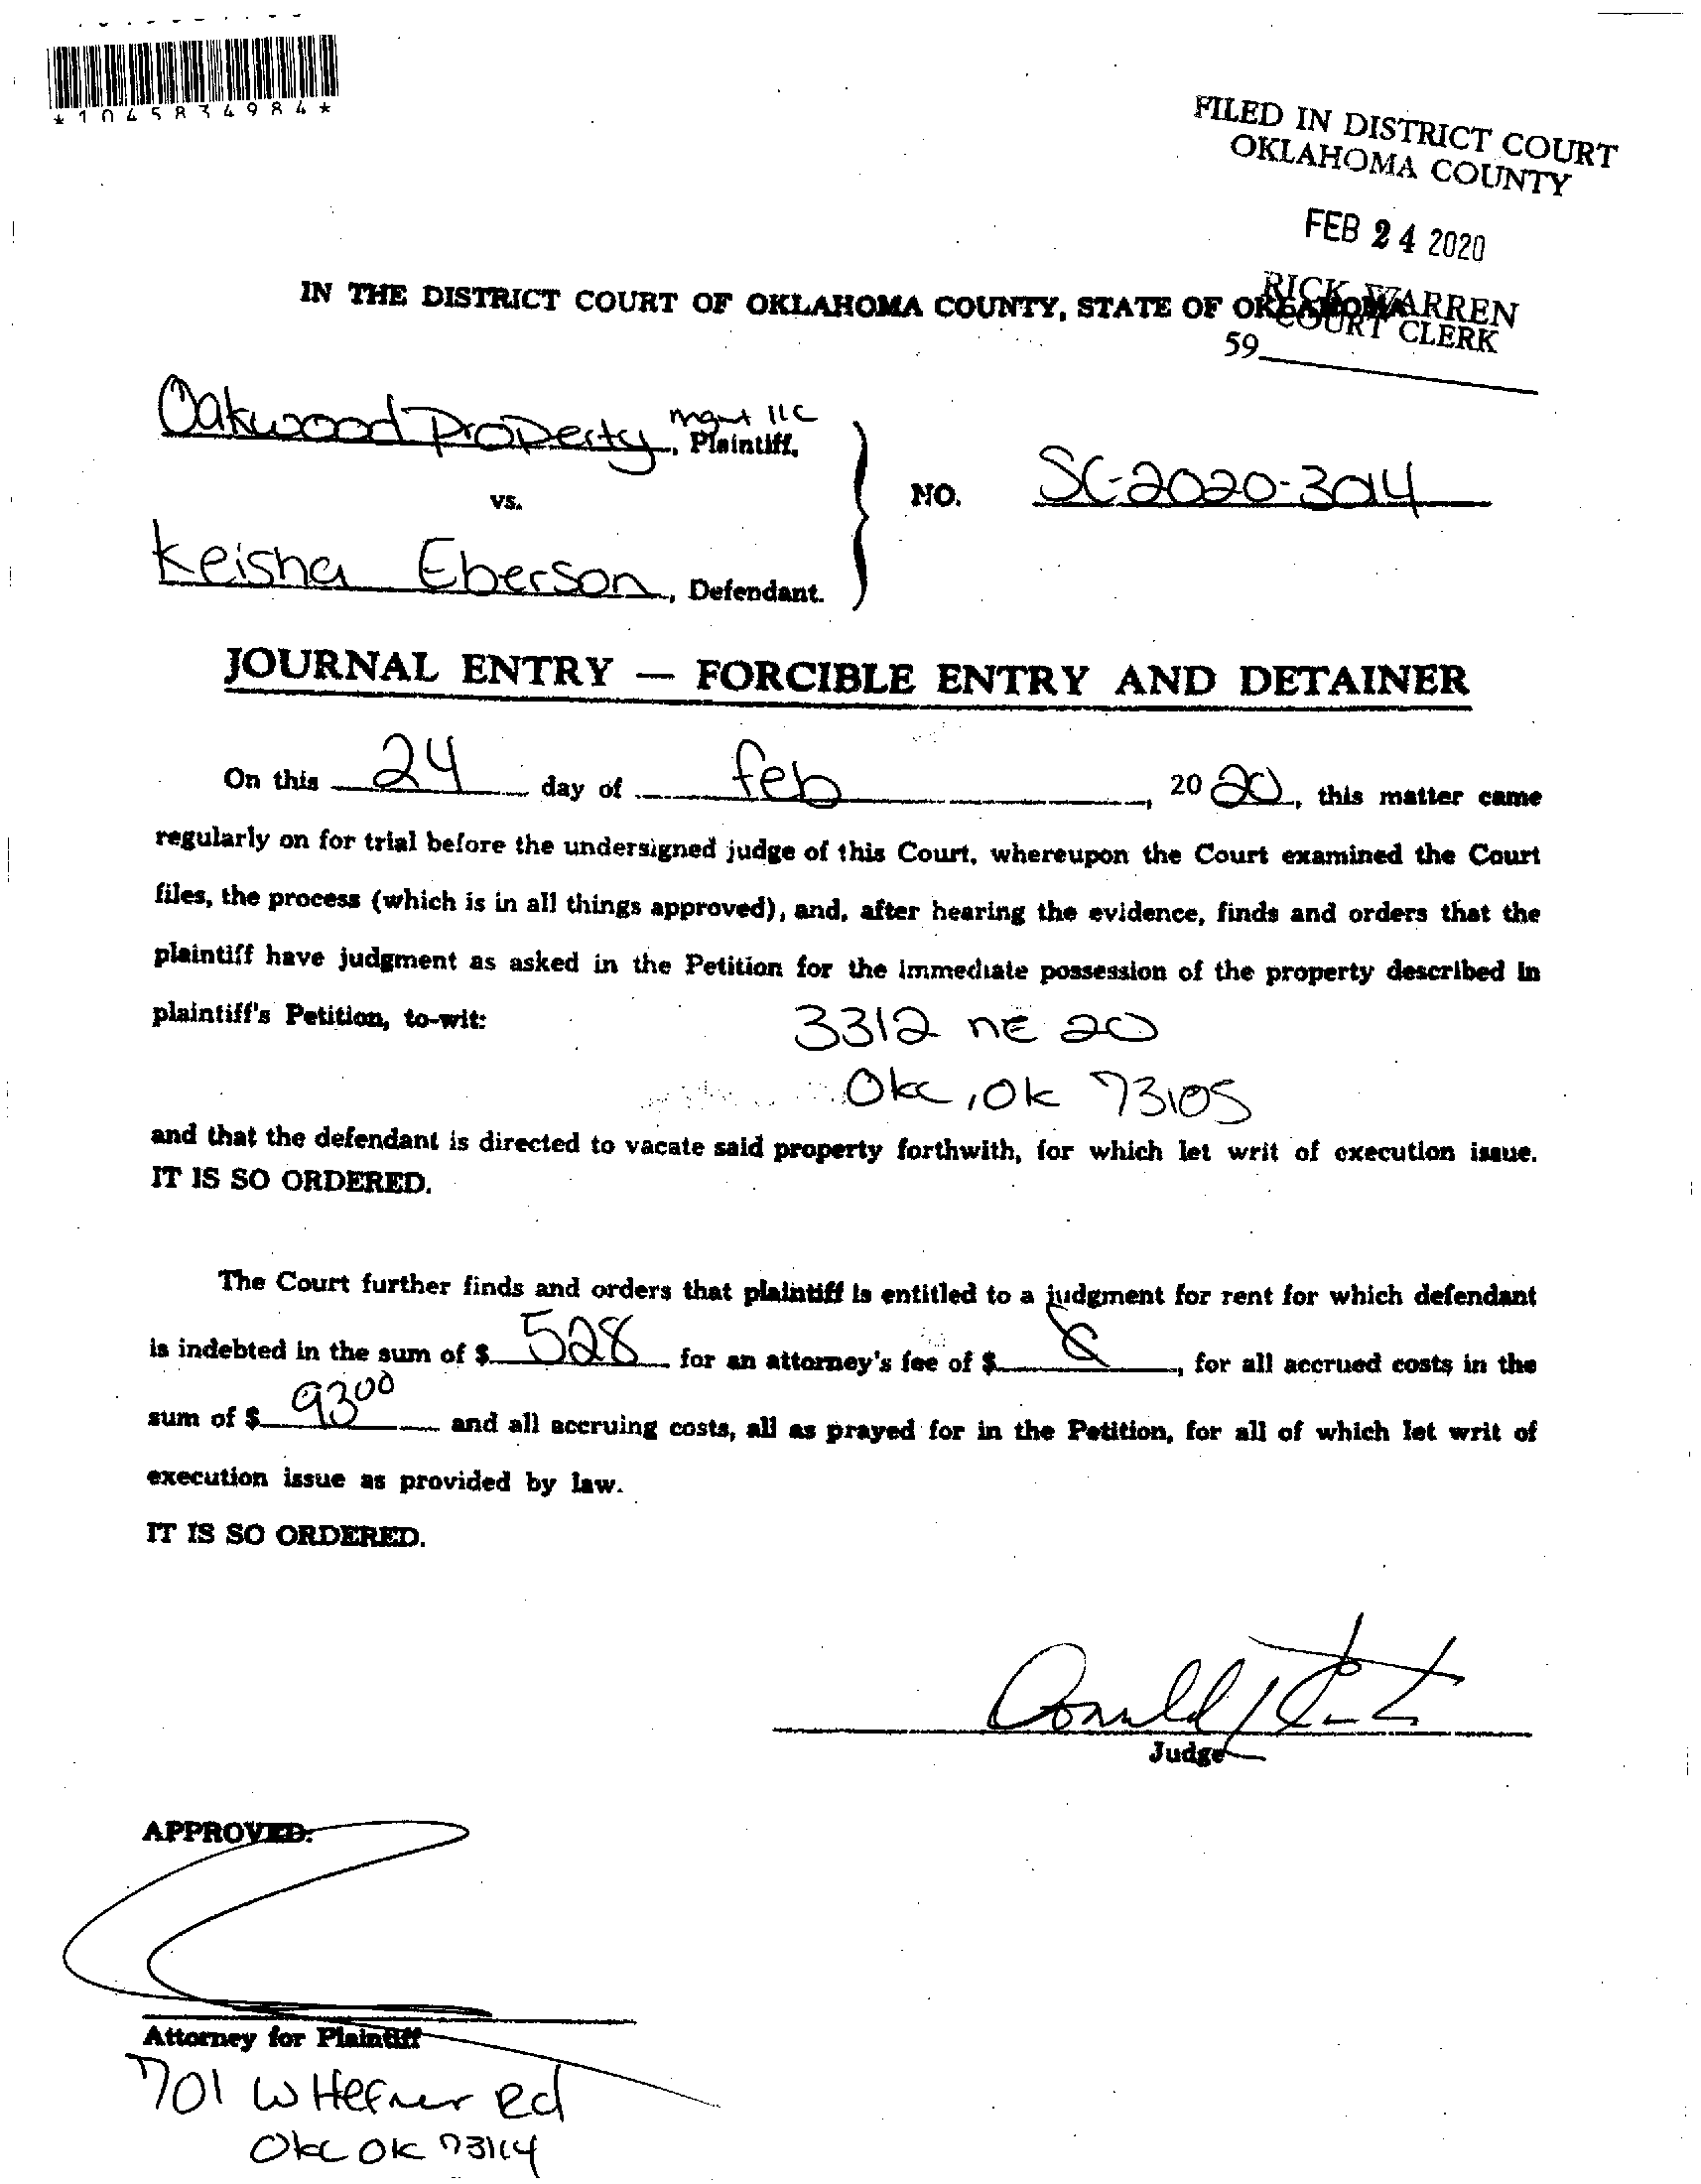 *1045834984*
FILED IN DISTRICT COURT
OKLAHOMA COUNTY
FEB 24 2020
RICK WARREN
COURT CLERK
59
IN THE DISTRICT COURT OF OKLAHOMA COUNTY, STATE OF OKLAHOMA
Oakwood Property mgmt llc, Plaintiff,
vs.
NO. SC-2020-3014
Keisha Eberson, Defendant.
JOURNAL ENTRY — FORCIBLE ENTRY AND DETAINER
On this 24 day of feb, 2020, this matter came
regularly on for trial before the undersigned judge of this Court, whereupon the Court examined the Court
files, the process (which is in all things approved), and, after hearing the evidence, finds and orders that the
plaintiff have judgment as asked in the Petition for the immediate possession of the property described in
plaintiff's Petition, to-wit: 3312 NE 20
Okc, Ok 73105
and that the defendant is directed to vacate said property forthwith, for which let writ of execution issue.
IT IS SO ORDERED.
The Court further finds and orders that plaintiff is entitled to a judgment for rent for which defendant
is indebted in the sum of $ 528 for an attorney's fee of $, for all accrued costs in the
sum of $ 93 00 and all accruing costs, all as prayed for in the Petition, for all of which let writ of
execution issue as provided by law.
IT IS SO ORDERED.
Judge
APPROVED:
Attorney for Plaintiff
701 W Hefner Rd
Okc OK 73114